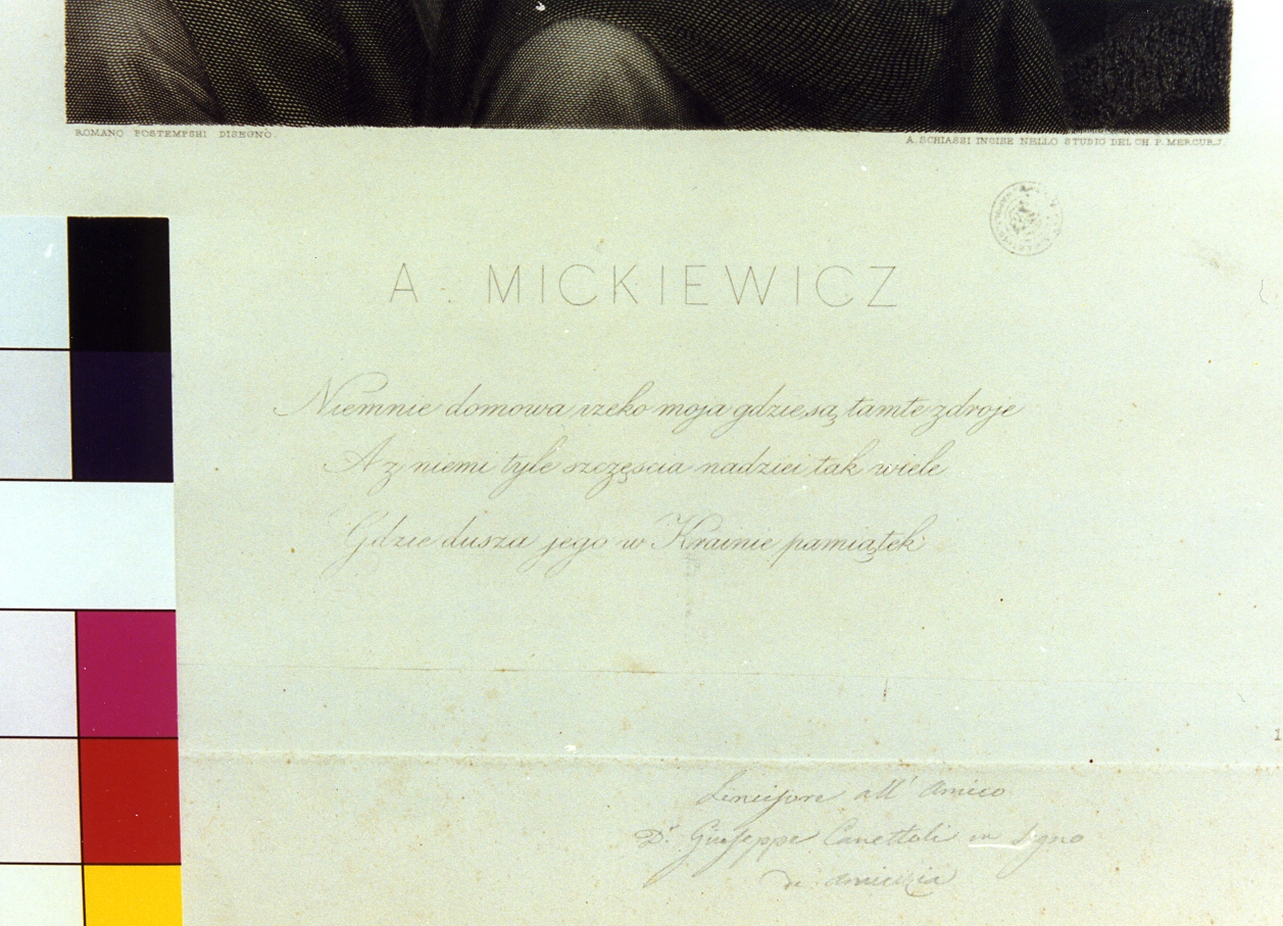 ROMANO POSTEMPSHI DISEGNÒ.
A. SCHIASSI INCISE NELLO STUDIO DEL CH. P. MERCURJ.
A. MICKIEWICZ
Niemnie domowa rzeko moja gdzie są tamte zdroje
A z niemi tyle szczęscia nadziei tak wiele
Gdzie dusza jego w Krainie pamiątek
L'incisore all' Amico
Dr. Giuseppe Canettoli in segno
di amicizia
1